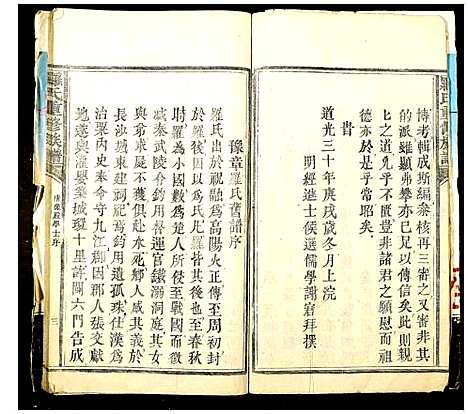 羅氏重修族譜
博考輯成斯編叅核再三審之又審實其
的派雖顯弗攀亦已足見而傳信矣則此
上之道先不匱豊非諸君之願慰而羅
德亦於是乎常昭矣
旹
道光三十年庚戌歲冬月上浣
明經進士候選儒學謝宭拜撰
豫章羅氏舊譜序
羅氏出於祝融為高陽火正傳至周初封
於羅為氏凡羅皆其後也至春秋
時羅為小國數為楚人所侵至戰國而徵
滅秦武陵令羅君用督運官鐵溺洞庭其女
與弟求屍不獲俱赴水死鄉人咸其義於
長沙城東建祠祀焉鈞用遺孤珠仕漢為
治粟内史奉命守九江郡因郡人張文獻
地遂與灌嬰築城環十里許闢六門告成
羅氏重修族譜